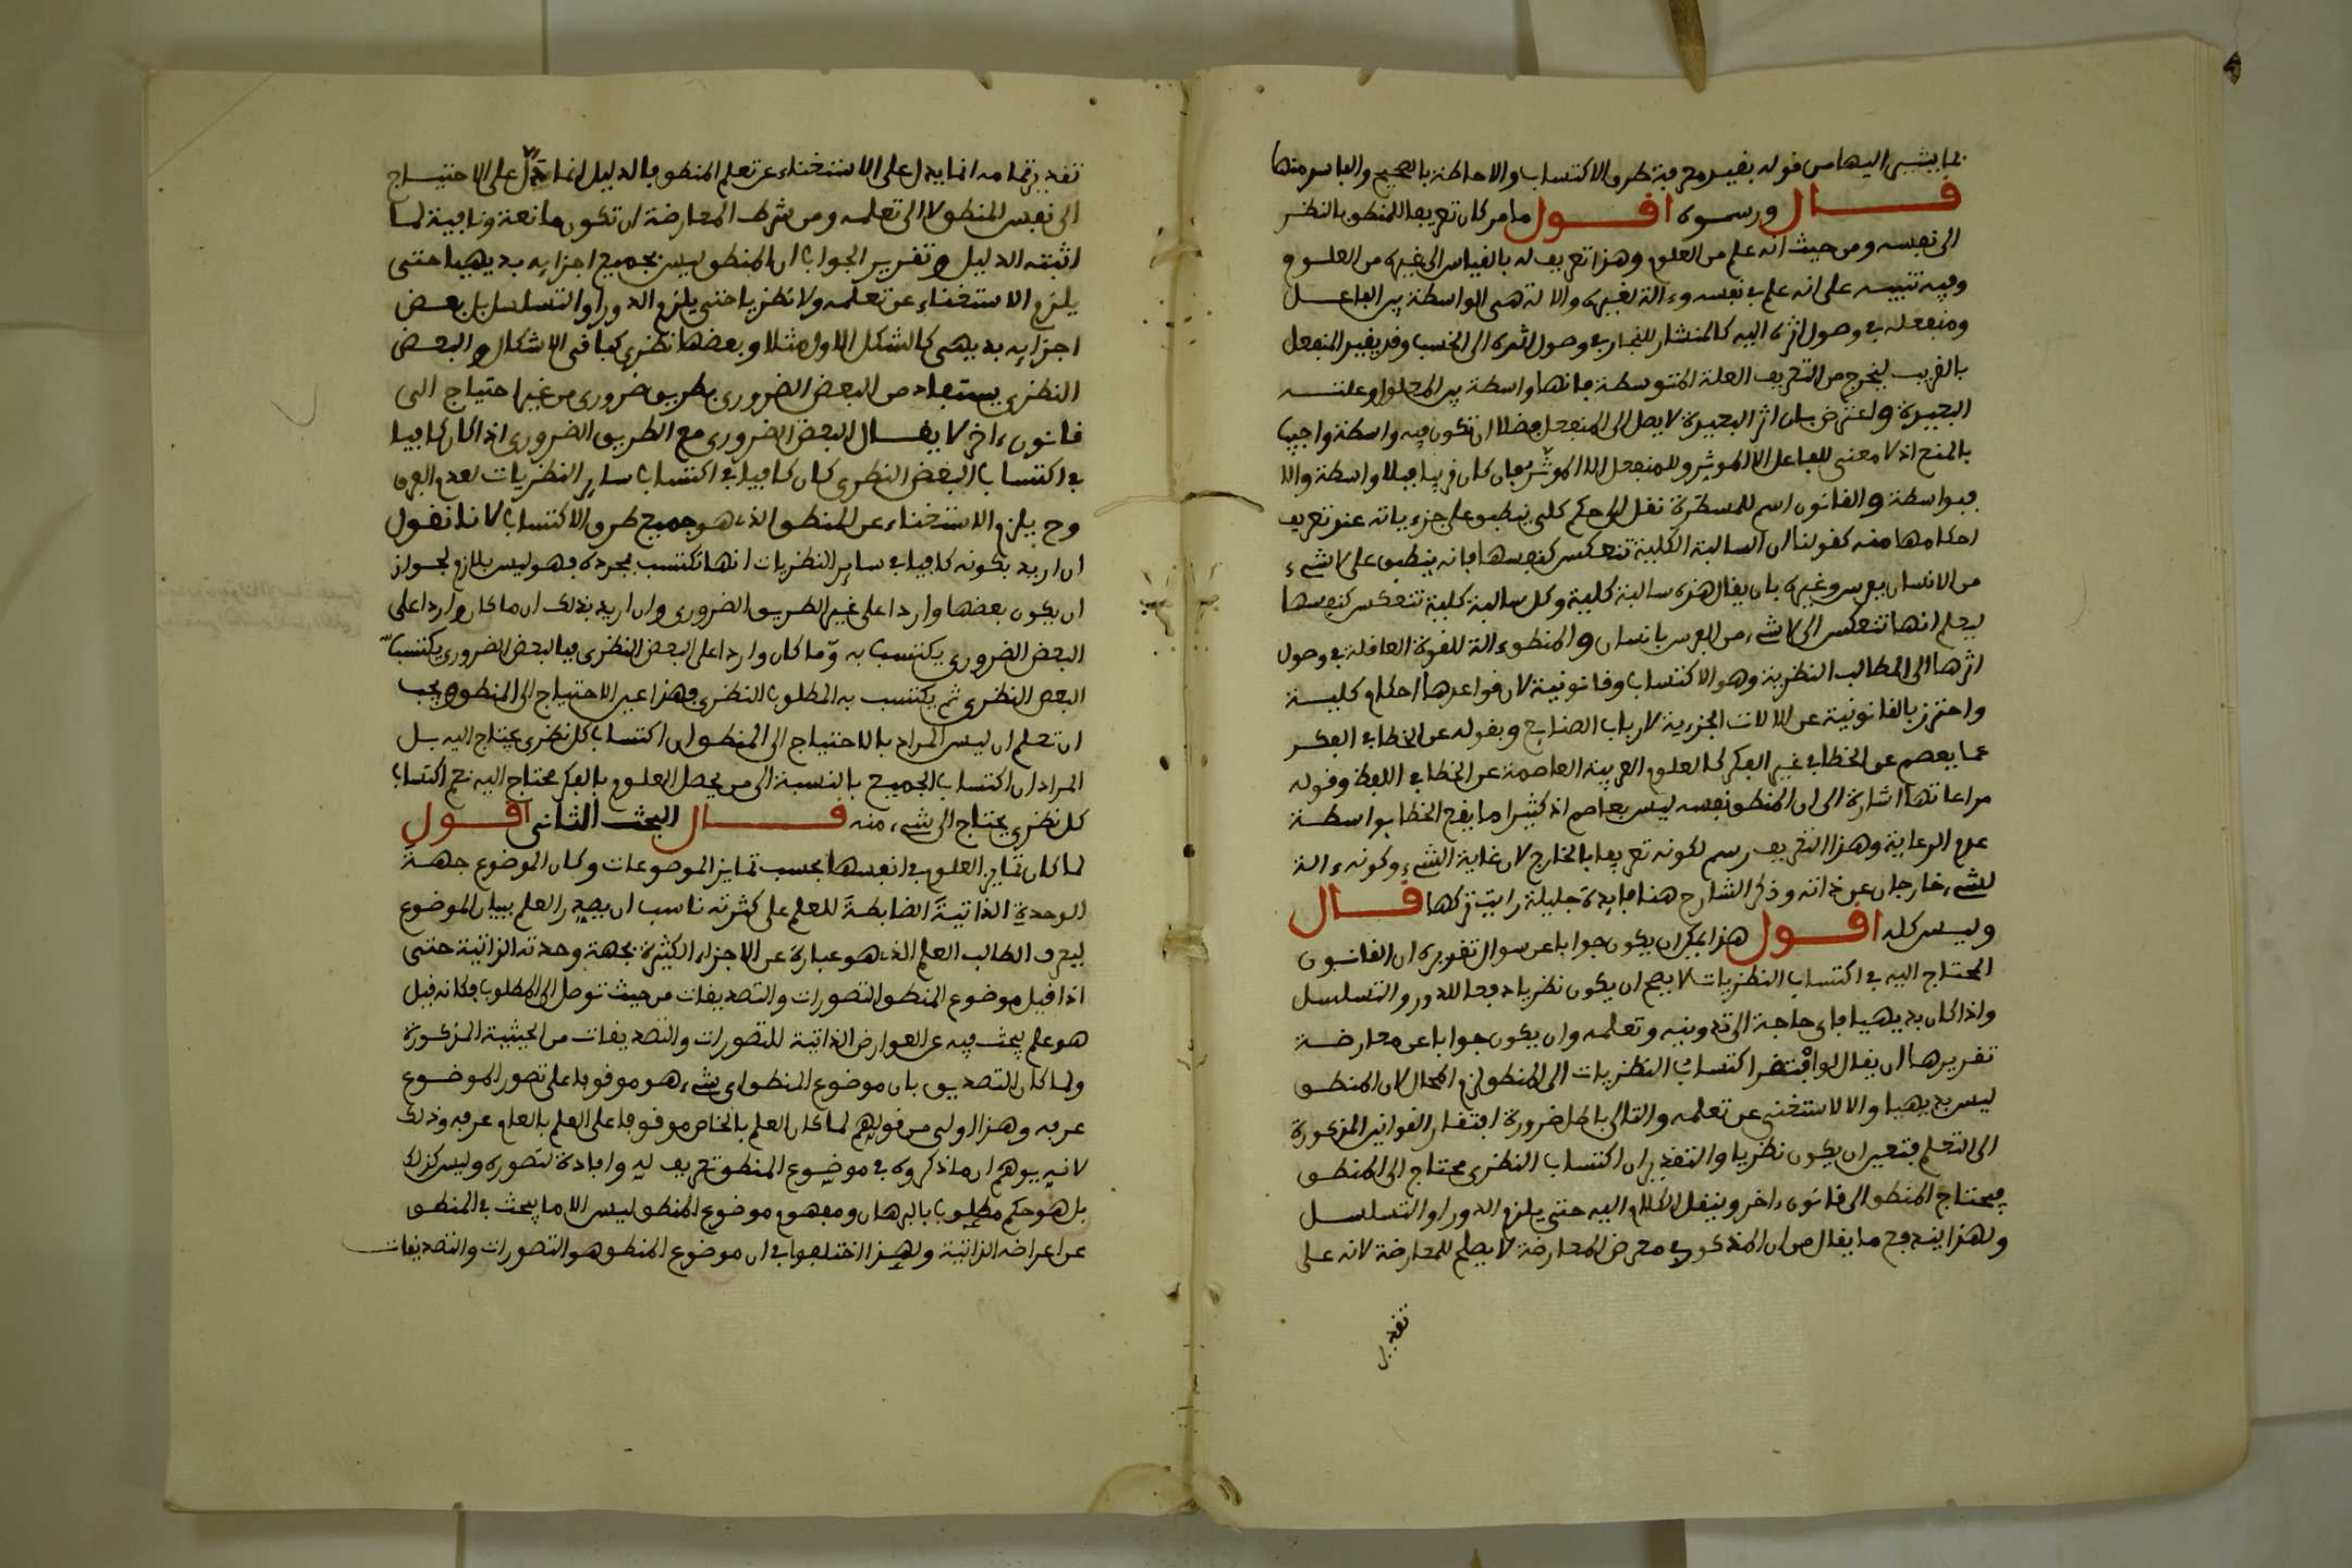 بما يشير اليها من قوله يفيد معرفة طرق الاكتساب والاحاطة بالصحيح والفاسد منها
قال ورسموه اقول ما مر كان تعريفا للمنطق بالنظر
الى نفسه ومن حيث انه علم من العلوم وهذا تعريف له بالقياس الى غيره من العلوم
وفيه تنبيه على انه علم في نفسه وءالة لغيره والالة هى الواسطة بين الفاعل
ومنفعله في وصول اثره اليه كالمنشار للنجار في وصول اثره الى الخشب وقد يقيد المنفعل
بالقريب ليخرج من التعريف العلة المتوسطة فانها واسطة بين المعلول وعلته
البعيدة واعترض بان اثر البعيدة لا يصل الى المنفعل فضلا ان تكون فيه واسطة واجيب
بالمنع اذ لا معنى للفاعل الا الموثر وللمنفعل الا الموثر فان كان قريبا فبلا واسطة والا
فبواسطة والقانون اسم للمسطرة نقل الى حكم كلى ينطبق على جزءياته عند تعريف
احكامها منه كقولنا ان السالبة الكلية تنعكس كنفسها فانه ينطبق على لا شىء
من الانسان بفرس وغيره بان يقال هذه سالبة كلية وكل سالبة كلية تنعكس كنفسها
ليعلم انها تنعكس الى لا شىء من الفرس بانسان والمنطق ءالة للقوة العاقلة في وصول
اثرها الى المطالب النظرية وهو الاكتساب وقانونية لان قواعدها احكام كلية
واحترز بالقانونية عن الالات الجزءية لارباب الصنايع وبقوله عن الخطا في الفكر
عما يعصم عن الخطا في غير الفكر كالعلوم العربية العاصمة عن الخطا في اللفظ وقوله
مراعاتها اشارة الى ان المنطق نفسه ليس بعاصم اذ كثيرا ما يقع الخطا بواسطة
عدم الرعاية وهذا التعريف رسم لكونه تعريفا بالخارج لان غاية الشىء وكونه ءالة
لشىء خارجان عن ذاته وذكر الشارح هنا فايدة جليلة رايت تركها قال
وليس كله اقول هذا يمكن ان يكون جوابا عن سوال تقريره ان القانون
المحتاج اليه في اكتساب النظريات لا يصح ان يكون نظريا دفعا للدور والتسلسل
واذا كان بديهيا فاى حاجة الى تدوينه وتعلمه وان يكون جوابا عن معارضة
تقريرها ان يقال لو افتقر اكتساب النظريات الى المنطق لزم المحال لان المنطق
ليس بديهيا والا لاستغنى عن تعلمه والتالى باطل ضرورة افتقار القوانين المذكورة
الى التعلم فتعين ان يكون نظريا والتقدير ان اكتساب النظرى محتاج الى المنطق
فيحتاج المنطق الى قانون ءاخر وينقل الكلام اليه حتى يلزم الدور او التسلسل
ولهذا يندفع ما يقال من ان المذكور في معرض المعارضة لا يصلح للمعارضة لانه على
تقدير
تقدير تمامه انما يدل على الاستغناء عن تعلم المنطق والدليل انما دل على الاحتياج
الى نفس المنطق لا الى تعلمه ومن شرط المعارضة ان تكون مانعة ونافية لما
اثبته الدليل وتقرير الجواب ان المنطق ليس بجميع اجزايه بديهيا حتى
يلزم الاستغناء عن تعلمه ولا نظريا حتى يلزم الدور او التسلسل بل بعض
اجزايه بديهى كالشكل الاول مثلا وبعضها نظرى كباقى الاشكال والبعض
النظرى يستفاد من البعض الضرورى بطريق ضرورى من غير احتياج الى
قانون ءاخر لا يقال البعض الضرورى مع الطريق الضرورى اذا كان كافيا
في اكتساب البعض النظرى كان كافيا في اكتساب ساير النظريات لعدم الفرق
وح يلزم الاستغناء عن المنطق الذى هو جميع طرق الاكتساب لانا نقول
ان اريد بكونه كافيا في ساير النظريات انها تكتسب بمجرده فهو ليس بلازم لجواز
ان يكون بعضها واردا على غير الطريق الضرورى وان اريد بذلك ان ما كان واردا على
البعض الضرورى يكتسب به وما كان واردا على البعض النظرى فبالبعض الضرورى يكتسب
البعض النظرى ثم يكتسب به المطلوب النظرى فهذا عين الاحتياج الى المنطق ويجب
ان تعلم ان ليس المراد بالاحتياج الى المنطق ان اكتساب كل نظرى يحتاج اليه بل
المراد ان اكتساب الجميع بالنسبة الى من يحصل العلوم بالفكر محتاج اليه نعم اكتساب
كل نظرى يحتاج الى شىء منه قال البحث الثانى اقول
لما كان تمايز العلوم في انفسها بحسب تمايز الموضوعات وكان الموضوع جهة
الوحدة الذاتية الضابطة للعلم على كثرته ناسب ان يصدر العلم ببيان الموضوع
ليعرف الطالب العلم الذى هو عبارة عن الاجزاء الكثيرة بجهة وحدته الذاتية حتى
اذا قيل موضوع المنطق التصورات والتصديقات من حيث توصل الى المطلوب فكانه قيل
هو علم يبحث فيه عن العوارض الذاتية للتصورات والتصديقات من الحيثية المذكورة
ولما كان التصديق بان موضوع المنطق اى شىء هو موقوفا على تصور الموضوع
عرفه وهذا اولى من قولهم لما كان العلم بالخاص موقوفا على العلم بالعام عرفه وذلك
لانه يوهم ان ما ذكروه في موضوع المنطق تعريف له وافادة لتصوره وليس كذلك
بل هو حكم مطلوب بالبرهان ومفهوم موضوع المنطق ليس الا ما يبحث في المنطق
عن اعراضه الذاتية ولهذا اختلفوا في ان موضوع المنطق هو التصورات والتصديقات